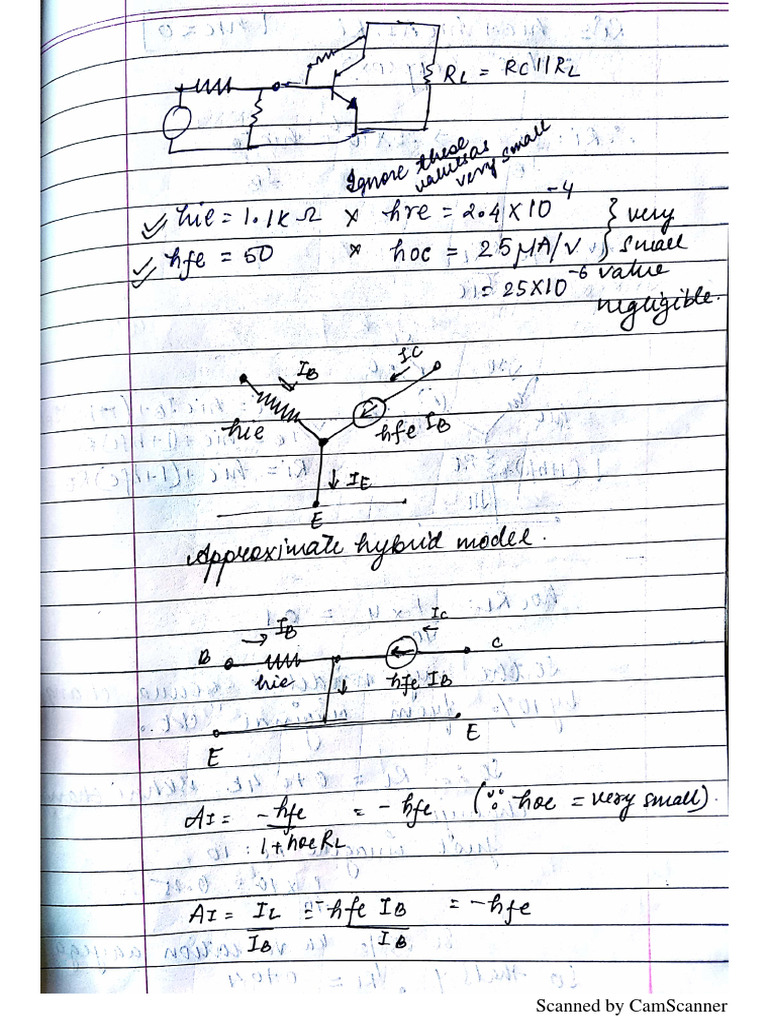 RL = RC || RL
Ignore these
values as
very small
hie = 1.1k Ω × hre = 2.4 × 10⁻⁴ } very
hfe = 50 × hoc = 25 μA/v } small
= 25×10⁻⁶ value
negligible.
IB
IC
hie
hfe IB
IE
E
Approximate hybrid model.
IB
IC
B
C
hie
hfe IB
E
E
AI = -hfe / 1 + hoe RL = - hfe (∵ hoe = very small).
AI = IL / IB = -hfe IB / IB = -hfe
Scanned by CamScanner